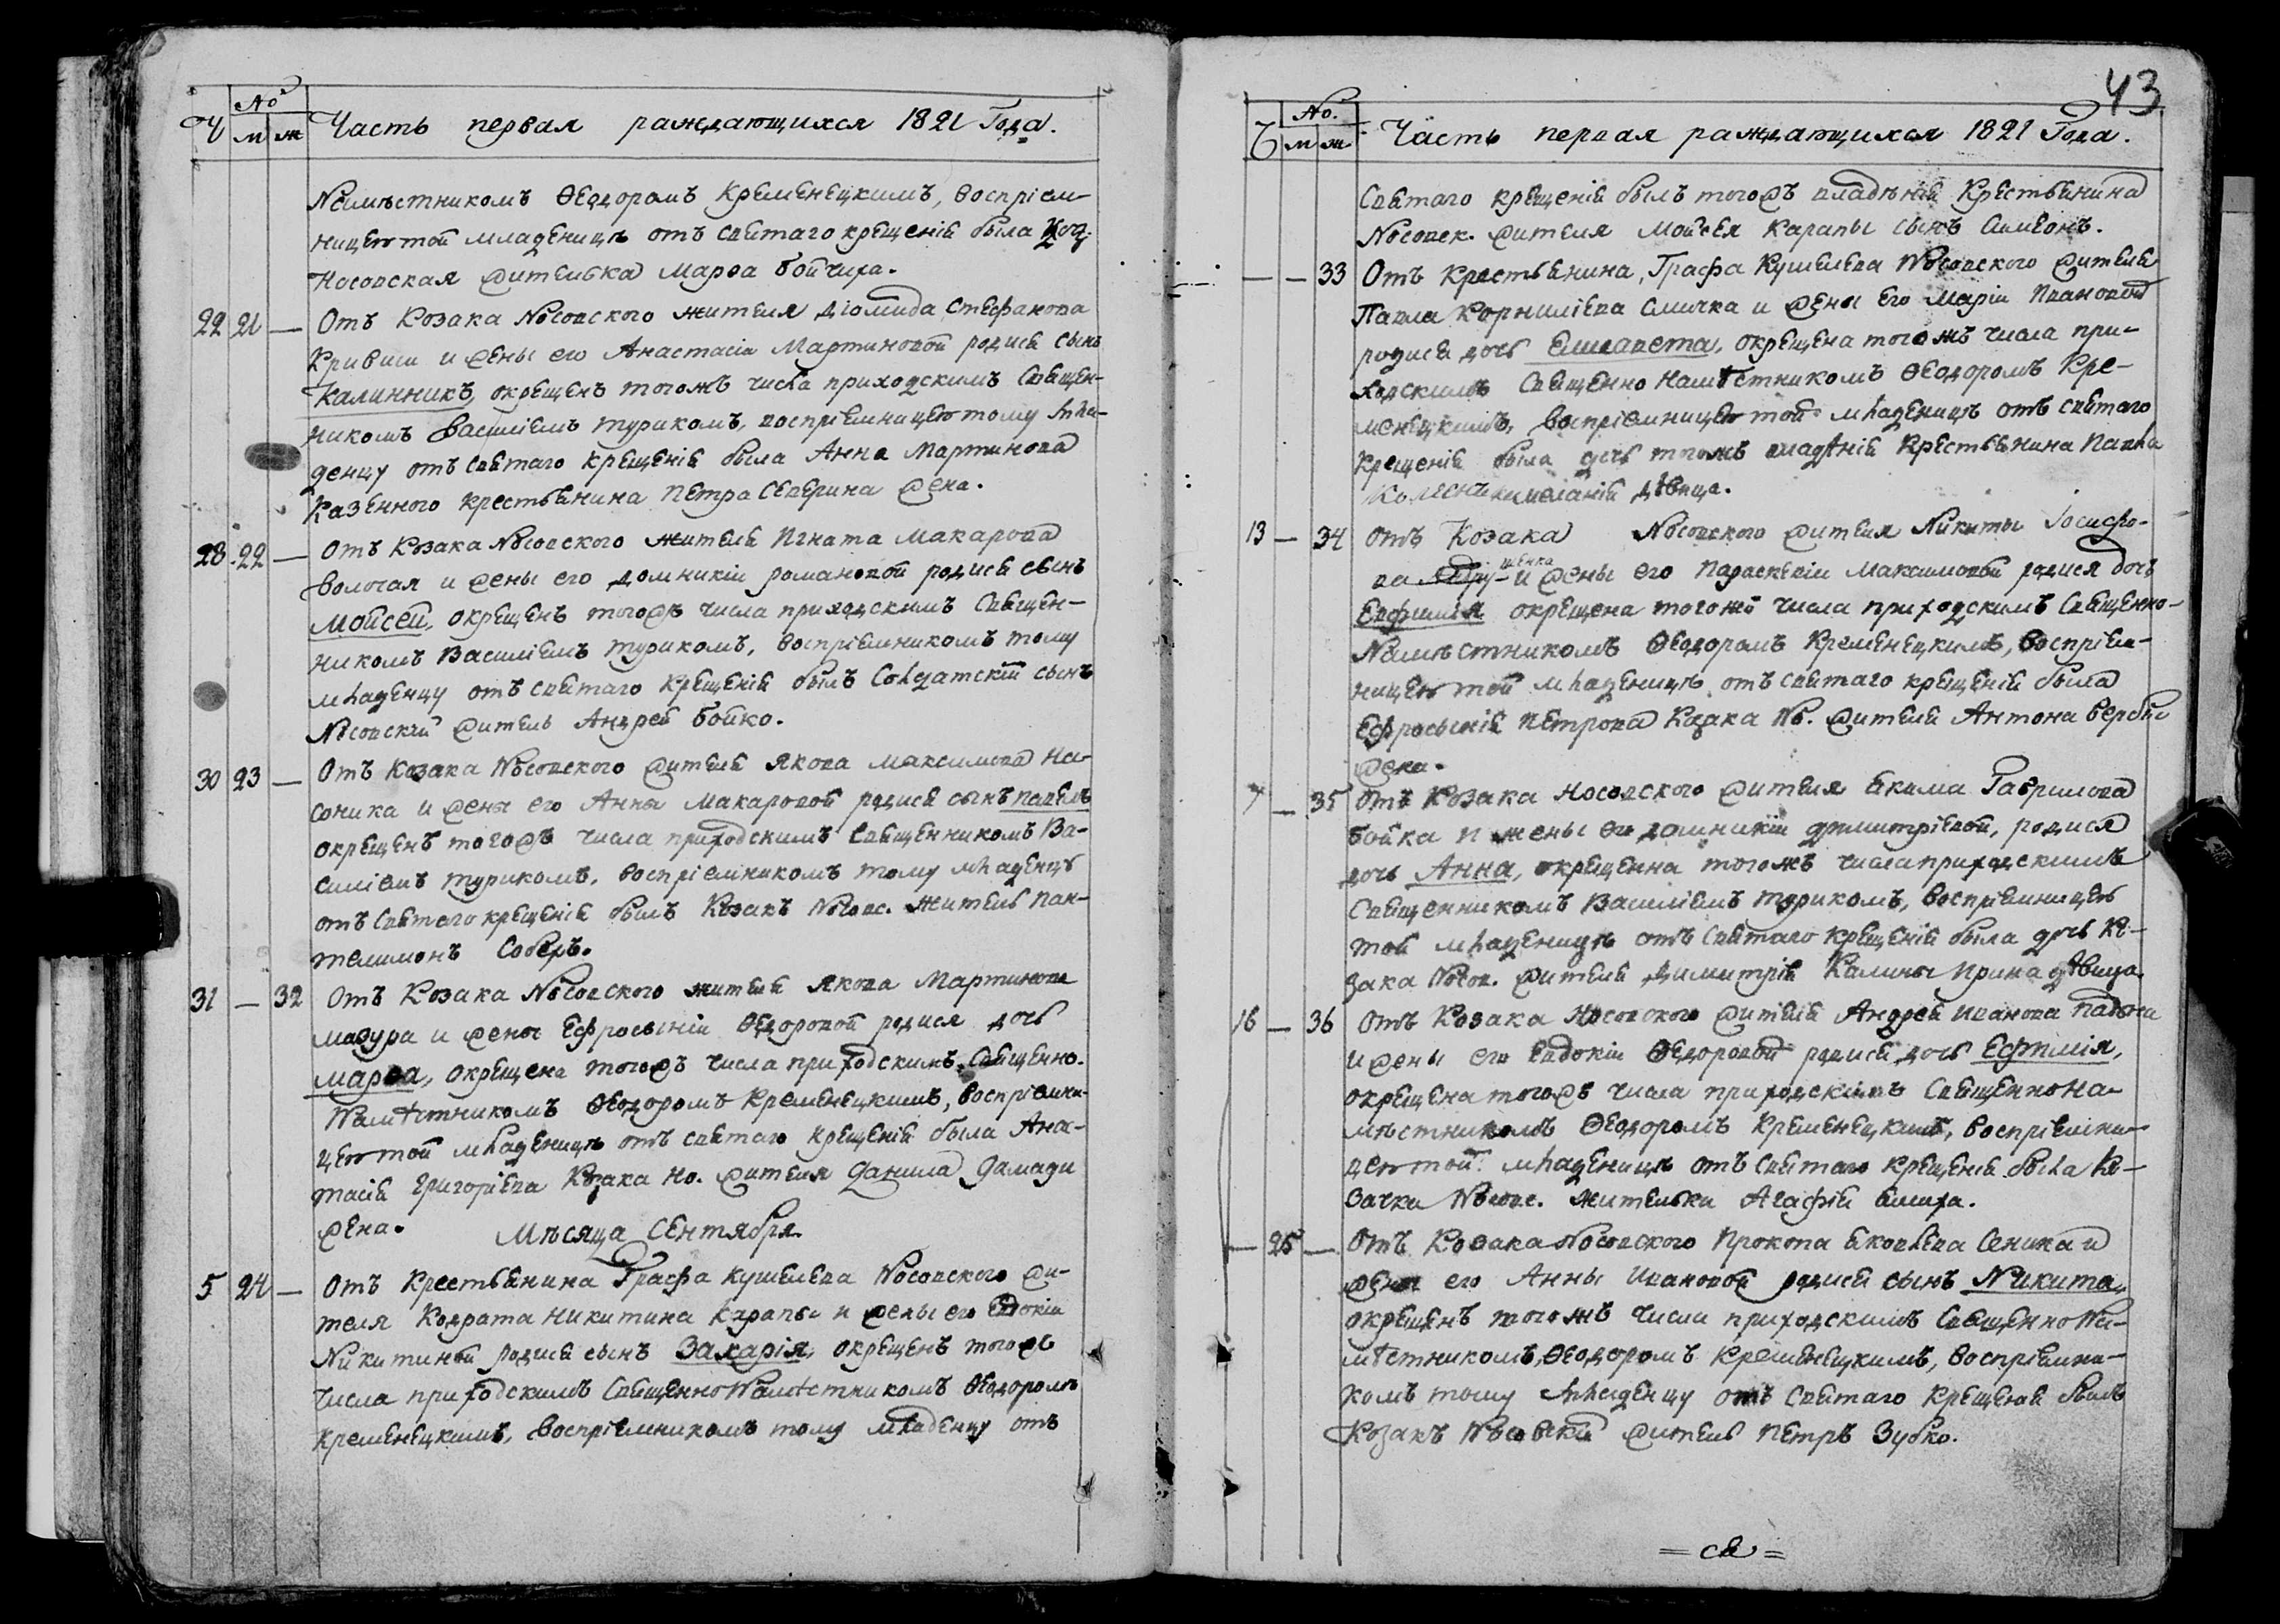 №
Ч м ж Часть первая раждающихся 1821 Года.
Намѣстникомъ Ѳеодоромъ Кременецкимъ, воспріем-
ницею той младеницѣ отъ святаго крещенія была
Носовская жителька Марѳа Бойчиха.
22 21 — Отъ Козака Носовского жителя Діомида Стефанова
Кривиши и жены его Анастасіи Мартиновой родися сынъ
Калинникъ, окрещенъ тогожъ числа приходскимъ Священ-
никомъ Василіемъ Туриком, воспріемницею тому мла-
денцу отъ святаго крещенія была Анна Мартинова
Казенного крестьянина Петра Северина жена.
28 22 — Отъ Козака Носовского жителя Игната Макарова
Волочая и жены его Домникіи Романовой родися сынъ
Мойсей, окрещенъ тогожъ числа приходскимъ Священ-
никомъ Василіемъ Туриком, воспріемникомъ тому
младенцу отъ святаго крещенія былъ Солдатскій сынъ
Носовскій житель Андрей Бойко.
30 23 — Отъ Козака Носовского жителя Якова Максимова На-
соника и жены его Анны Макаровой родися сынъ Павелъ
окрещенъ тогожъ числа приходскимъ Священникомъ Ва-
силіемъ Туриком, воспріемникомъ тому младенцу
отъ святаго крещенія былъ Козакъ Носовс. житель Пан-
телимонъ Соберъ.
31 — 32 Отъ Козака Носовского жителя Якова Мартинова
Мазура и жены Ефросыніи Ѳедоровой родися дочь
Марѳа, окрещена тогожъ числа приходскимъ Священно-
Намѣстникомъ Ѳеодоромъ Кременецкимъ, воспріемни-
цею той младеницѣ отъ святаго крещенія была Ана-
тасія Григоріева Козака Но. жителя Данила Дамади
жена. Мѣсяца Сентября
5 24 — Отъ Крестьянина Графа Кушелева Носовского жи-
теля Кодрата Никитина Карапы и жены его Евдокіи
Никитиной родися сынъ Захарія, окрещенъ тогожъ
числа приходскимъ СвященноНамѣстникомъ Ѳеодоромъ
Кременецкимъ, воспріемникомъ тому младенцу отъ
43
№.
Ч м ж Часть первая раждающихся 1821 Года.
Святаго крещенія былъ тогожъ владѣнія Крестьянина
Носовск. жителя Мойсея Карапы сынъ Симеонъ.
— — 33 Отъ Крестьянина, Графа Кушелева Носовского жителя
Павла Корниліева Смычка и жены его Маріи Ивановой
родися дочь Елисавета, окрещена тогожъ числа при-
ходскимъ СвященноНамѣстникомъ Ѳеодоромъ Кре-
менецкимъ, воспріемницею той младеницѣ отъ святаго
крещенія была дочь тогожъ владѣнія Крестьянина Павла
девица.
13 — 34 Отъ Козака Носовского жителя Никиты Іосифо-
ва и жены его Параскевіи Максимовой родися дочь
Евфимія окрещена тогожъ числа приходскимъ Священно-
Намѣстникомъ Ѳеодоромъ Кременецкимъ, воспріем-
ницею той младеницѣ отъ святаго крещенія была
Ефросынія Петрова Козака Но. жителя Антона Вербы
жена.
7 — 35 Отъ Козака Носовского жителя Якима Гаврилова
Бойка и жены его Домникіи Димитріевой, родися
дочь Анна, окрещенна тогожъ числа приходскимъ
Священникомъ Василіемъ Туриком, воспріемницею
той младеницѣ отъ святаго крещенія была дочь Ко-
зака Носов. жителя Димитрія Калины Ирина дѣвица.
16 — 36 Отъ Козака Носовского жителя Андрея Иванова
и жены его Евдокіи Ѳедоровой родися дочь Ефимія,
окрещена тогожъ числа приходскимъ СвященноНа-
мѣстникомъ Ѳеодоромъ Кременецкимъ, воспріемни-
цею той младеницѣ отъ святаго крещенія была Ко-
зачка Носовс. жителька Агафія
— 25 — Отъ Козака Носовского Прокопа Яковлева Сеника и
жены его Анны Ивановой родися сынъ Никита,
окрещенъ тогожъ числа приходскимъ СвященноНа-
мѣстникомъ, Ѳеодоромъ Кременецкимъ, воспріемни-
комъ тому младенцу отъ святаго крещенія былъ
Козакъ Носовскій житель Петръ Зубко.